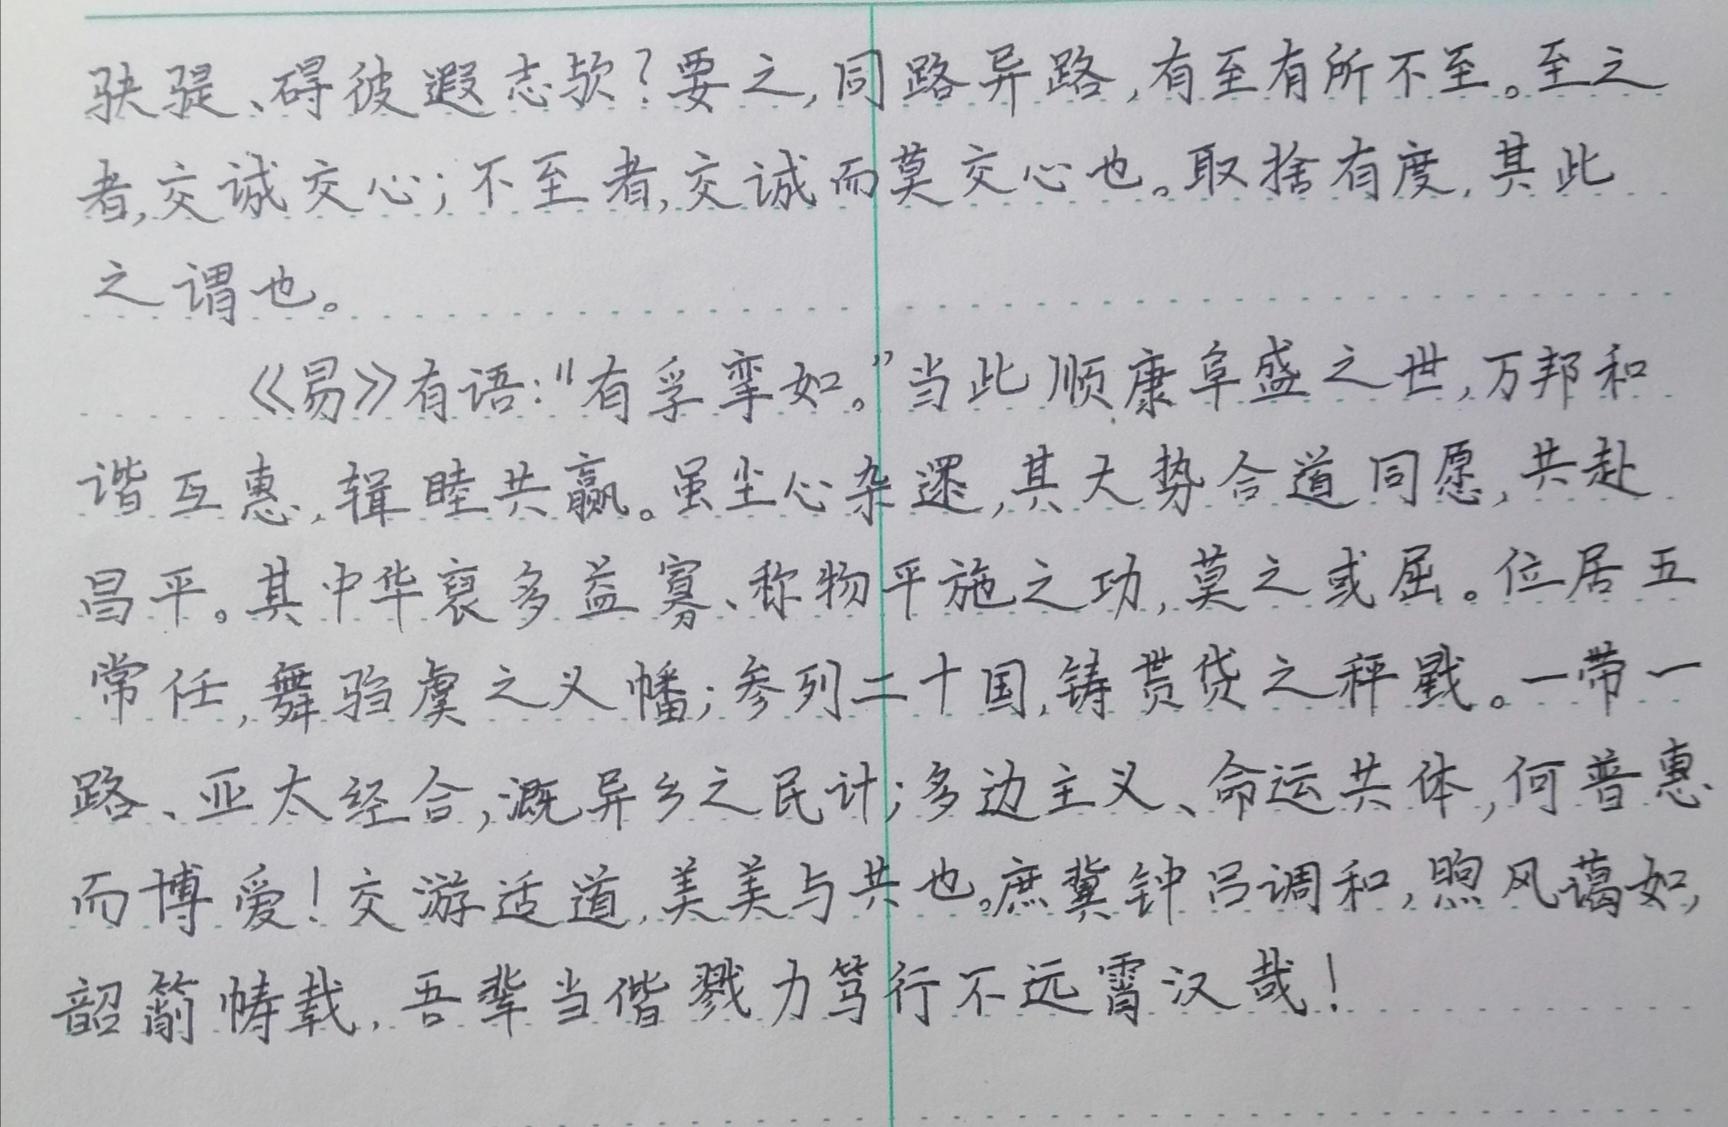 䮤、碍彼遐志欤？要之，同路异路，有至有所不至。至之
者，交诚交心；不至者，交诚而莫交心也。取捨有度，其此
之谓也。
《易》有语：“有孚挛如。”当此顺康阜盛之世，万邦和
谐互惠，辑睦共赢。虽尘心杂遝，其大势合道同愿，共赴
昌平。其中华裒多益寡、称物平施之功，莫之或屈。位居五
常任，舞驺虞之义幡；参列二十国，铸贯贷之秤戥。一带一
路、亚太经合，溉异乡之民计；多边主义、命运共体，何普惠
而博爱！交游适道，美美与共也。庶冀钟吕调和，煦风蔼如，
韶箾帱载，吾辈当偕戮力笃行不远霄汉哉！